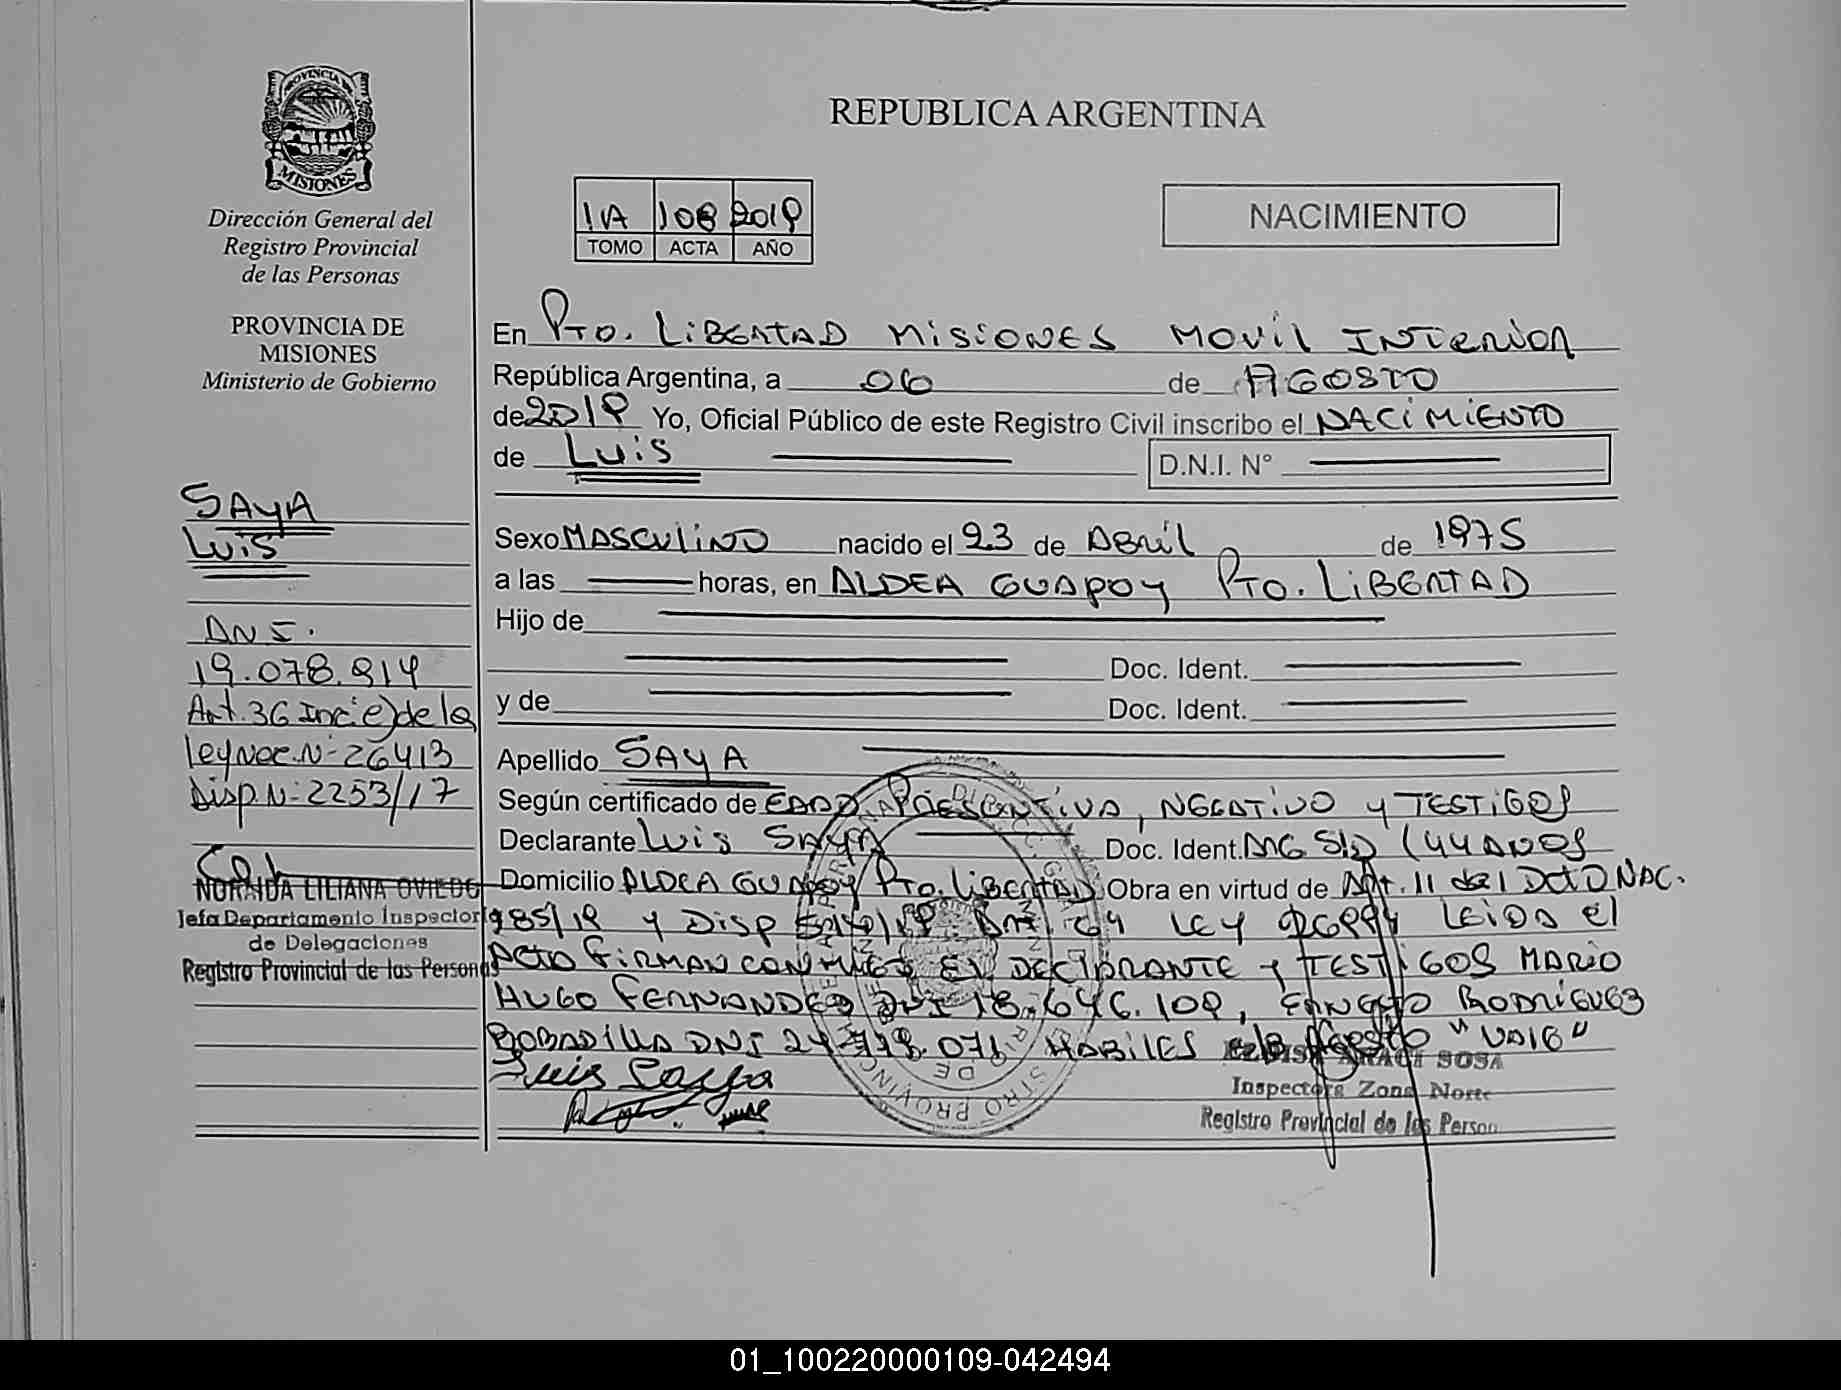 PROVINCIA DE
MISIONES
Dirección General del
Registro Provincial
de las Personas
PROVINCIA DE
MISIONES
Ministerio de Gobierno
REPUBLICA ARGENTINA
1A 108 2019
TOMO ACTA AÑO
NACIMIENTO
En Pto. LIBERTAD MISIONES MOVIL INTERIOR
República Argentina, a 06 de AGOSTO
de 2019 Yo, Oficial Público de este Registro Civil inscribo el NACIMIENTO
de Luis D.N.I. N°
Sexo MASCULINO nacido el 23 de ABRIL de 1975
a las horas, en ALDEA GUAPOY Pto. LIBERTAD
Hijo de
Doc. Ident.
y de Doc. Ident.
Apellido SAYA
Según certificado de EDAD PRESUNTIVA, NEGATIVO y TESTIGOS
Declarante Luis SAYA Doc. Ident. (44 AÑOS
Domicilio ALDEA GUAPOY Pto. LIBERTAD Obra en virtud de Art. 11 del Dcto NAC.
985/19 y DISP LEY LEIDA el
ACTA FIRMAN CONMIGO EL DECLARANTE y TESTIGOS MARIO
HUGO FERNANDEZ DNI 18.646.109, RODRIGUEZ
BOBADILLA DNI HABILES "VALE"
Luis Saya
SOSA
Inspectora Zona Norte
Registro Provincial de las Person
SAYA
LUIS
DNI.
19.078.914
Art. 36 Inc. e) de la
Ley Nac. N° 26413
Disp. N° 2253/17
NORMIDA LILIANA OVIEDO
Jefa Departamento Inspector
de Delegaciones
Registro Provincial de las Personas
01_100220000109-042494